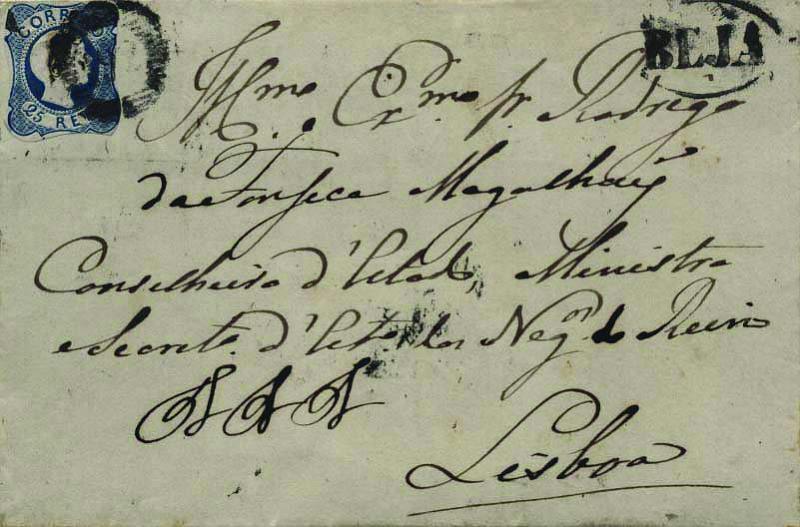 CORREIO
25 RE
BEJA
Illmo e Exmo Sr Rodrigo
da Fonseca Magalhães
Conselheiro d'Estado, Ministro
e Secreto. d'Esto. dos Negos. do Reino
Lisboa